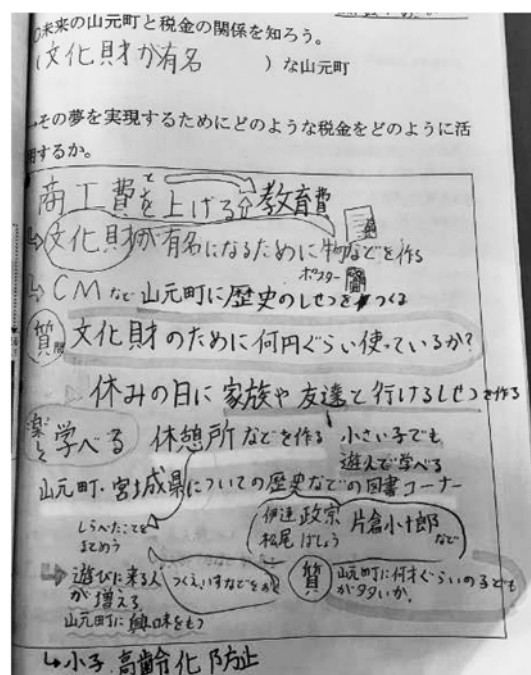 ○未来の山元町と税金の関係を知ろう。
(文化財が有名 )な山元町
→その夢を実現するためにどのような税金をどのように活
用するか。
商工費を上げる⇧と教育費
↳文化財が有名になるために物などを作る
ポスター
↳CMなど山元町に歴史のしせつをつくる
質問 文化財のために何円ぐらい使っているか?
休みの日に家族や友達と行けるしせつを作る
楽しく学べる 休憩所などを作る 小さい子でも
遊んで学べる
山元町・宮城県についての歴史などの図書コーナー
伊達政宗 片倉小十郎
松尾ばしょう など
しらべたことを
まとめう
→遊びに来る人
が増える
山元町に興味をもつ
つくえ、いすなどをおく
質 山元町に何才ぐらいの子ども
が多いか。
↳小子高齢化防止